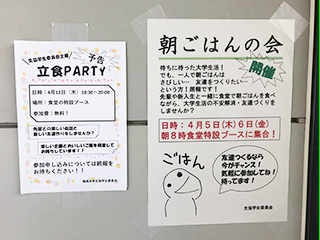 生協学生委員会主催！
予告
立食PARTY
日時：4月12日（木）18:30～20:00
場所：食堂の特設ブース
参加費：無料！
先輩との楽しい会話と
新しい友達作りをしませんか？
楽しい企画とおいしいご飯を用意して
お待ちしています！
参加申し込みについては続報を
お待ちください！！
生協学生委員会
朝ごはんの会
開催
待ちに待った大学生活！
でも、一人で朝ごはんは
さびしい… 友達をつくりたい
という方！朗報です！
先輩や新入生と一緒に食堂で朝ごはんを食べ
ながら、大学生活の不安解消・友達づくりを
しませんか？
日時：4月5日(木)6日(金)
朝8時食堂特設ブースに集合！
ごはん
友達つくるなら
今がチャンス！
気軽に参加してね！
待ってます！
生協学生委員会